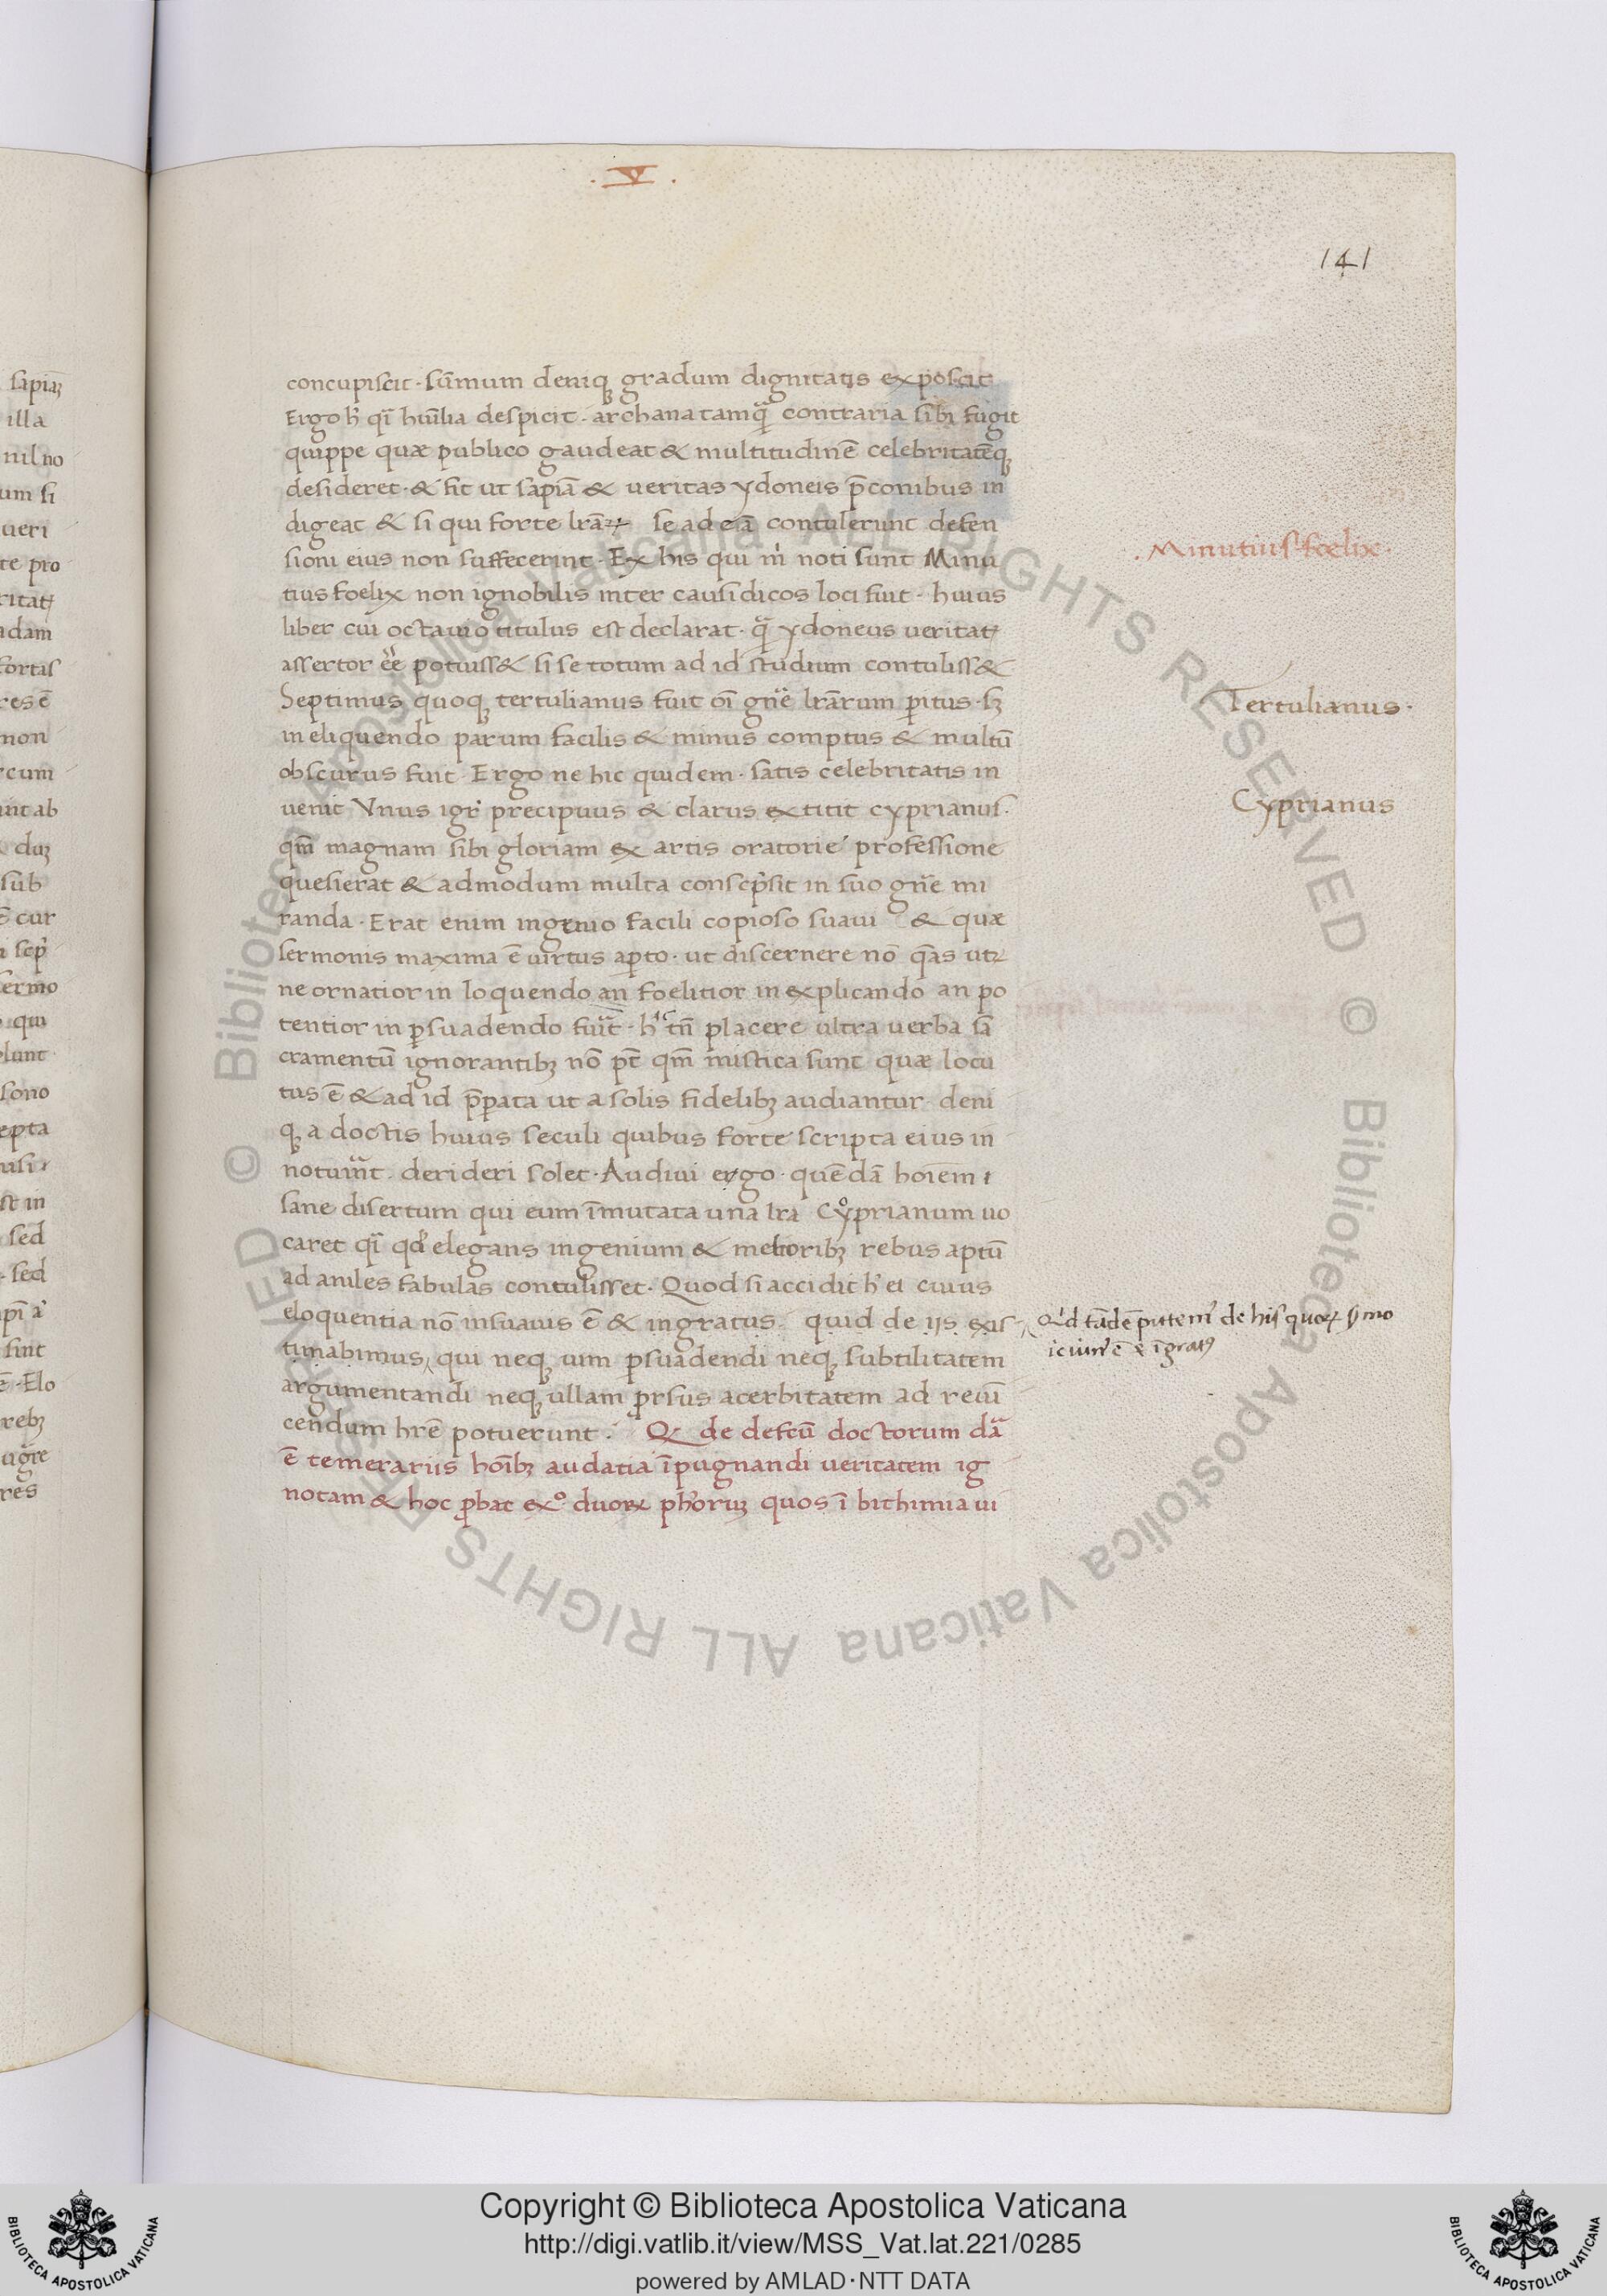 .V.
141
concupiscit · sūmum deniqꝫ gradum dignitatis exposcit
Ergo h̓ qī hūilia despicit · archana tamqͣ contraria sibi fugit
quippe quæ publico gaudeat & multitudinē celebritatēqꝫ
desideret · & fit ut sapiā & veritas ydoneis p̄conibus in
digeat & si qui forte lrāꝝ se ad eā contulerunt defen
sioni eius non suffecerint · Ex his qui m̓ noti sunt Minu
tius foelix non ignobilis inter causidicos loci fuit · huius
liber cui octauio titulus est declarat · qͣ ydoneus ueritatꝭ
assertor ēe potuiss& si se totum ad id studium contuliss&
Septimus quoqꝫ tertulianus fuit oī gn̄e lrārum ꝑitus · sꝫ
in eliquendo parum facilis & minus comptus & multū
obscurus fuit Ergo ne hic quidem · satis celebritatis in
uenit Vnus igr̓ precipuus & clarus extitit cyprianus ·
qm̄ magnam sibi gloriam ex artis oratorie professione
quesierat & admodum multa conscp̓sit in suo gn̄e mi
randa · Erat enim ingenio facili copioso suaui & quæ
sermonis maxima ē uirtus aꝑto · ut discernere nō qas utꝝ
ne ornatior in loquendo an foelitior in explicando an po
tentior in ꝑsuadendo fuit · h̓ tn̄ placere ultra uerba sa
cramentū ignorantibꝫ nō pt̄ qm̄ mistica sunt quæ locu
tus ē & ad id p̄parata ut a solis fidelibꝫ audiantur · deni
qꝫ a doctis huius seculi quibus forte scripta eius in
notuͬint derideri solet · Audiui ergo · quēdā hoīem ı
sane disertum qui eum īmutata una lrā Cyͦprianum uo
caret qͥ qd̓ elegans ingenium & melioribꝫ rebus aptū
ad aniles fabulas contulisset · Quod si accidit h̓ ei cuius
eloquentia nō insuauis ē & ingratus quid de iis exis
timabimus, qui neqꝫ uim ꝑsuadendi neqꝫ subtilitatem
argumentandi neqꝫ ullam prorsus acerbitatem ad reuī
cendum hr̄e potuerunt · Qꝫ de defcū doctorum dͣa
ē temerariis hoībꝫ audatia īpugnandi ueritatem ig
notam & hoc ꝓbat exͦ duoꝝ ph̓orꝫ quos ī bithimia ui
. Minutius foelix ·
Tertulianus ·
Cyprianus
Qͥd tādē putem̓ de his quoꝝ s̓mo
ieiun̓ ē & īgratꝰ
sapiaꝫ
illa
nil no
um si
ueri
te pro
ritatꝭ
adam
fortis
res ē
non
cum
int ab
duꝫ
sub
cur
scp̓
sermo
qui
lunt
sono
epta
st in
sed
sed
sint
ē · Elo
rebꝫ
res
Copyright © Biblioteca Apostolica Vaticana
http://digi.vatlib.it/view/MSS_Vat.lat.221/0285
powered by AMLAD·NTT DATA
BIBLIOTECA APOSTOLICA VATICANA
BIBLIOTECA APOSTOLICA VATICANA
© Biblioteca Apostolica Vaticana ALL RIGHTS RESERVED © Biblioteca Apostolica Vaticana ALL RIGHTS RESERVED